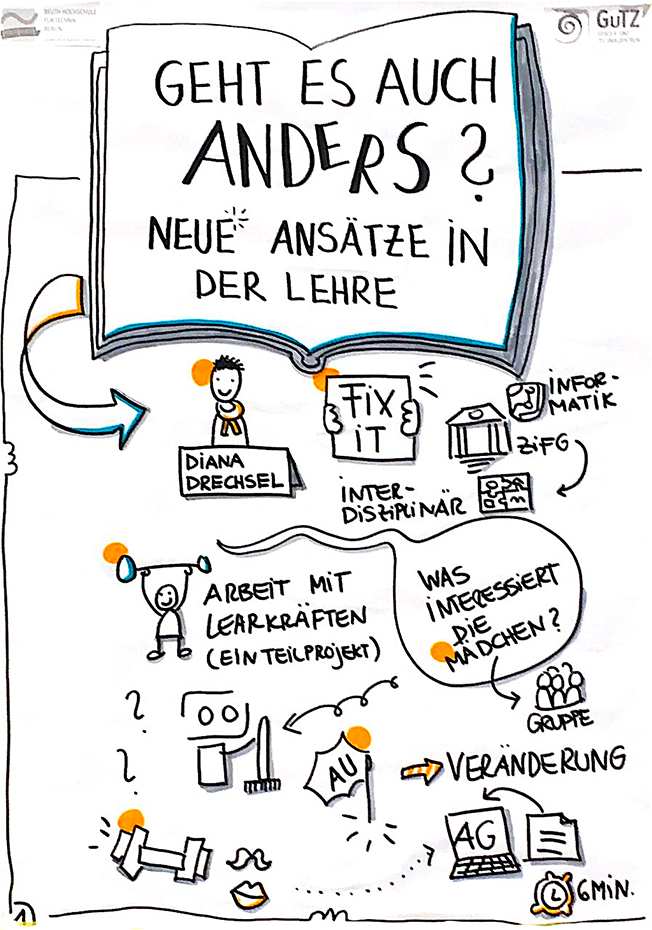 BEUTH HOCHSCHULE
FÜR TECHNIK
BERLIN
GuTZ
GEHT ES AUCH
ANDERS?
NEUE ANSÄTZE IN
DER LEHRE
DIANA
DRECHSEL
FIX
IT
INFOR-
MATIK
ZiFG
INTER-
DISZIPLINÄR
ARBEIT MIT
LEARKRÄFTEN
(EIN TEILPROJEKT)
WAS
INTERESSIERT
DIE
MÄDCHEN?
GRUPPE
?
?
AU
VERÄNDERUNG
AG
6 MIN.
1